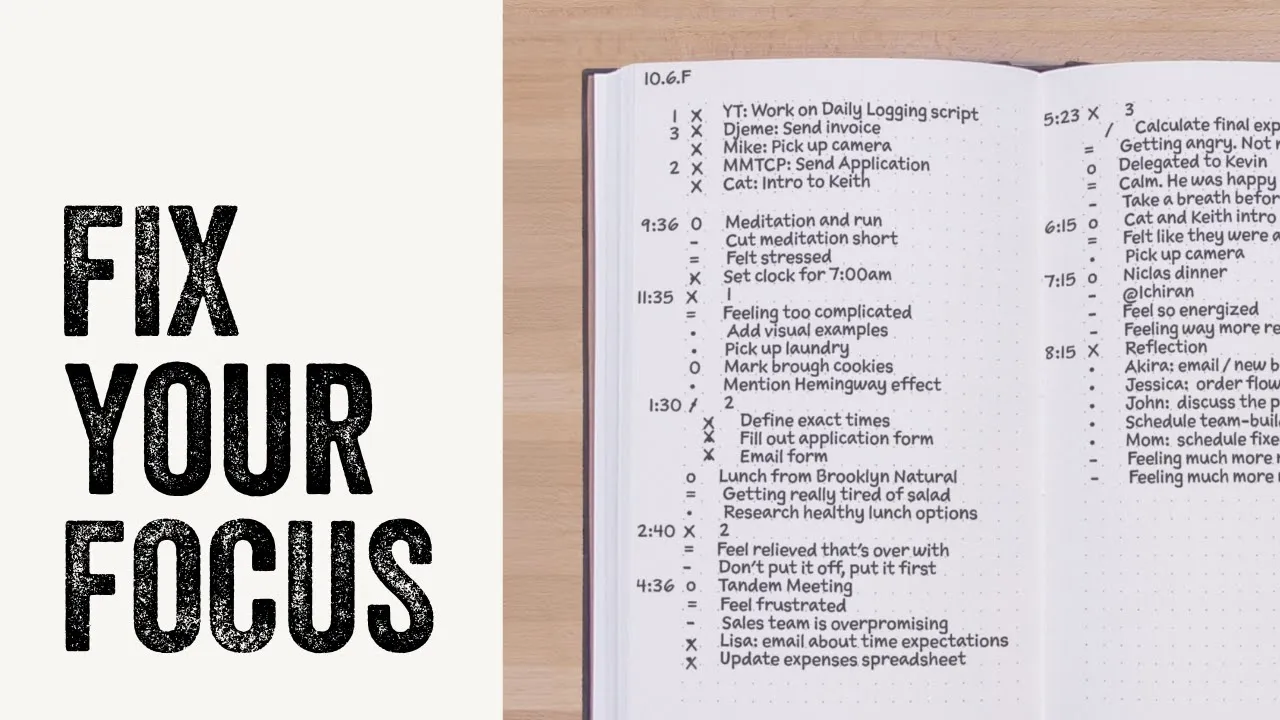 FIX
YOUR
FOCUS
10.6.F
1 x YT: Work on Daily Logging script
3 x Djeme: Send invoice
x Mike: Pick up camera
2 x MMTCP: Send Application
x Cat: Intro to Keith
9:36 O Meditation and run
- Cut meditation short
= Felt stressed
x Set clock for 7:00am
11:35 x 1
= Feeling too complicated
• Add visual examples
• Pick up laundry
O Mark brough cookies
• Mention Hemingway effect
1:30 / 2
x Define exact times
x Fill out application form
x Email form
o Lunch from Brooklyn Natural
= Getting really tired of salad
• Research healthy lunch options
2:40 x 2
= Feel relieved that's over with
- Don't put it off, put it first
4:36 o Tandem Meeting
= Feel frustrated
- Sales team is overpromising
x Lisa: email about time expectations
x Update expenses spreadsheet
5:23 x 3
/ Calculate final exp
= Getting angry. Not
o Delegated to Kevin
= Calm. He was happy
- Take a breath befor
6:15 o Cat and Keith intro
= Felt like they were a
• Pick up camera
7:15 o Niclas dinner
- @Ichiran
- Feel so energized
- Feeling way more re
8:15 x Reflection
• Akira: email / new b
• Jessica: order flow
• John: discuss the p
• Schedule team-buil
• Mom: schedule fixe
- Feeling much more
- Feeling much more